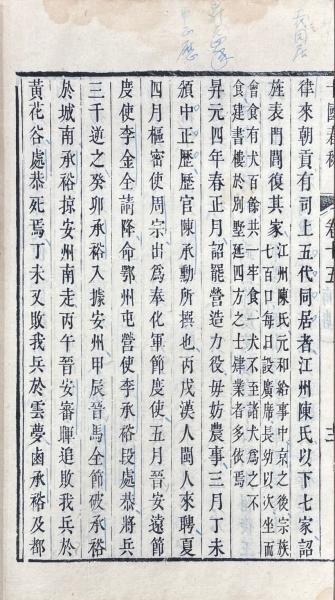 十國春秋 卷十五
律來朝貢有司上五代同居者江州陳氏以下七家詔
旌表門閭復其家江州陳氏元和給事中京之後宗族七百口每日設廣席長幼以次坐而
食有犬百餘共一牢食一犬不至諸犬為之不食建書樓於別墅延四方之士肄業者多依焉
昇元四年春正月詔罷營造力役毋妨農事三月丁未
頒中正曆曆官陳承勳所撰也丙戌漢人閩人來聘夏
四月樞密使周宗出爲奉化軍節度使五月晉安遠節
度使李金全請降命鄂州屯營使李承裕段處恭將兵
三千逆之癸卯承裕入據安州甲辰晉馬全節破承裕
於城南承裕掠安州南走丙午晉安審暉追敗我兵於
黃花谷處恭死焉丁未又敗我兵於雲夢鹵承裕及都